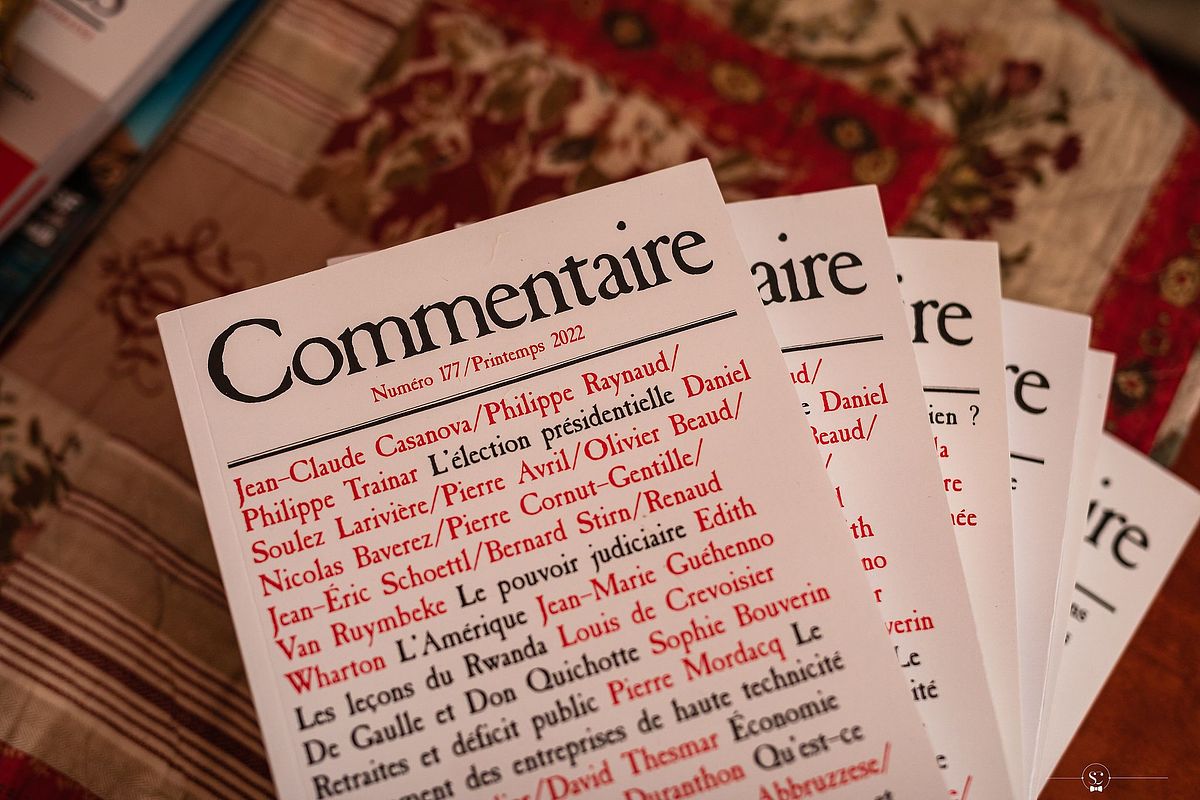 Commentaire
Numéro 177/Printemps 2022
Jean–Claude Casanova/Philippe Raynaud/
Philippe Trainar L'élection présidentielle Daniel
Soulez Larivière/Pierre Avril/Olivier Beaud/
Nicolas Baverez/Pierre Cornut–Gentille/
Jean–Éric Schoettl/Bernard Stirn/Renaud
Van Ruymbeke Le pouvoir judiciaire Edith
Wharton L'Amérique Jean–Marie Guéhenno
Les leçons du Rwanda Louis de Crevoisier
De Gaulle et Don Quichotte Sophie Bouverin
Retraites et déficit public Pierre Mordacq Le
ment des entreprises de haute technicité
/David Thesmar Économie
Duranthon Qu'est–ce
Abbruzzese/
aire
ud/
e Daniel
Beaud/
/
th
no
r
verin
Le
ité
e
/
ire
ien ?
la
re
née
re
e
ire